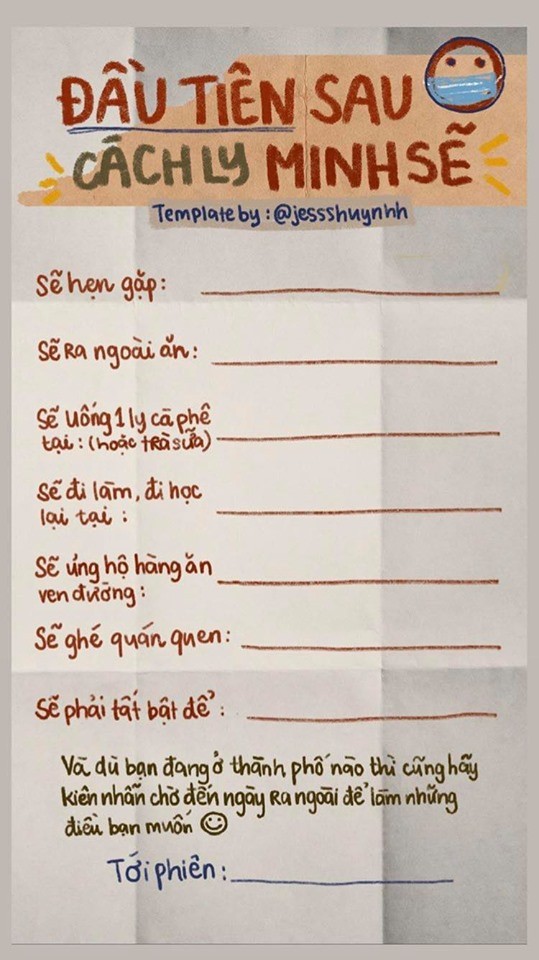 ĐẦU TIÊN SAU
CÁCH LY MÌNH SẼ
Template by : @jessshuynhh
Sẽ hẹn gặp:
Sẽ Ra ngoài ăn:
Sẽ uống 1 ly cà phê
tại : (hoặc trà sữa)
Sẽ đi làm, đi học
lại tại :
Sẽ ủng hộ hàng ăn
ven đường :
Sẽ ghé quán quen:
Sẽ phải tất bật để :
Và dù bạn đang ở thành phố nào thì cũng hãy
kiên nhẫn chờ đến ngày Ra ngoài để làm những
điều bạn muốn
Tới phiên :